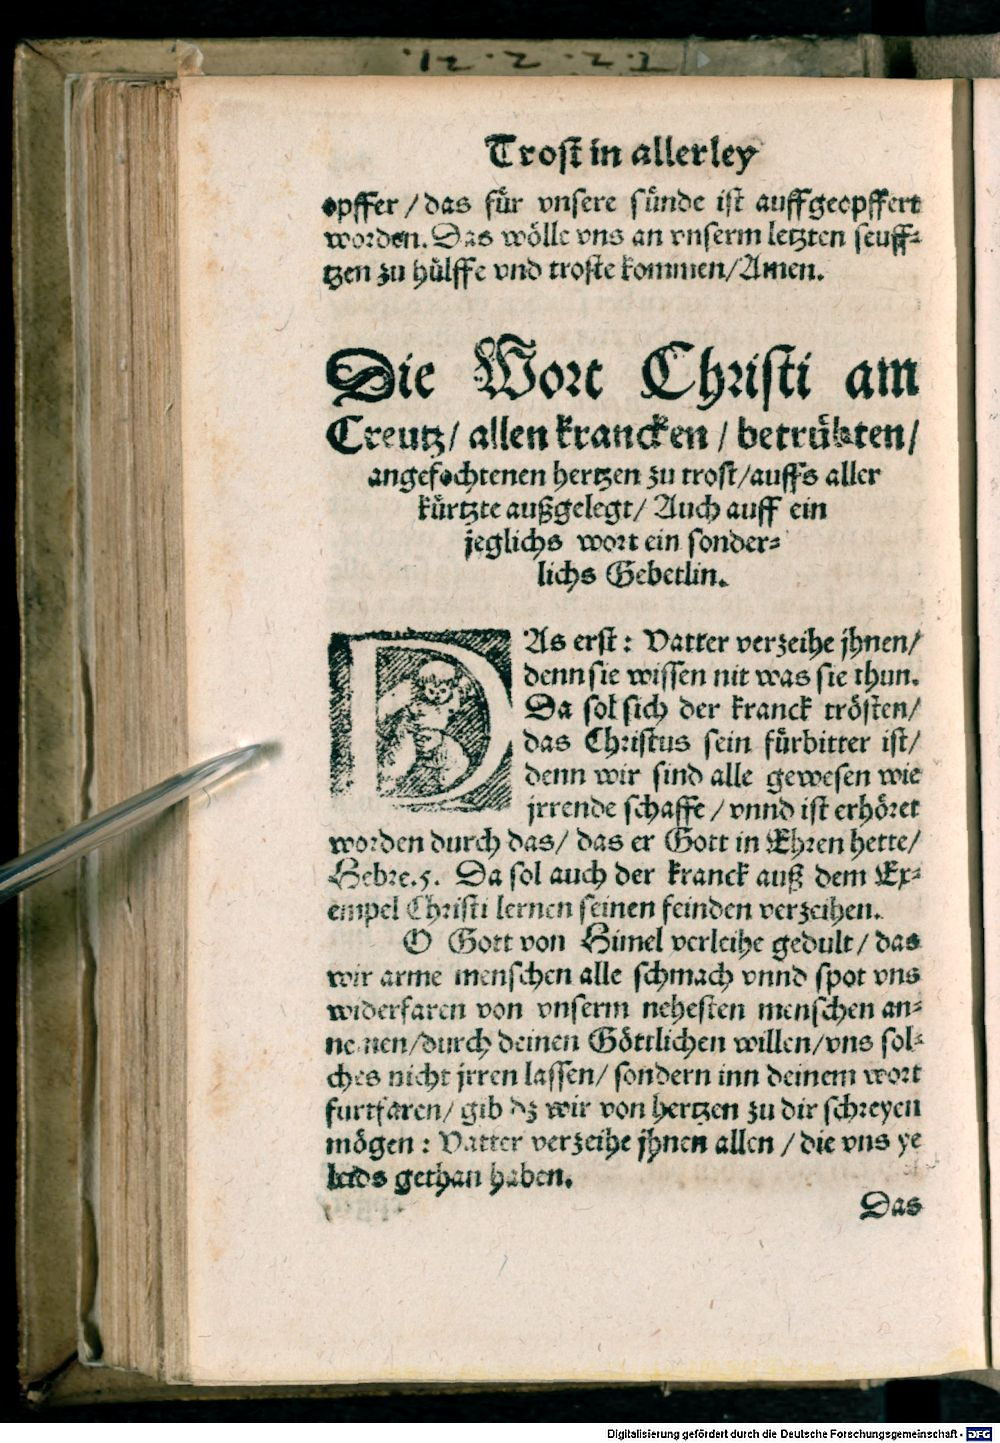 Trost in allerley
opffer / das für vnsere sünde ist auffgeopffert
worden. Das wölle vns an vnserm letzten seuff-
tzen zu hülffe vnd troste kommen / Amen.
Die Wort Christi am
Creutz / allen krancken / betrübten /
angefochtenen hertzen zu trost / auffs aller
kürtzte außgelegt / Auch auff ein
jeglichs wort ein sonder-
lichs Gebetlin.
DAs erst : Vatter verzeihe jhnen /
denn sie wissen nit was sie thun.
Da sol sich der kranck trösten /
das Christus sein fürbitter ist /
denn wir sind alle gewesen wie
jrrende schaffe / vnnd ist erhöret
worden durch das / das er Gott in Ehren hette /
Hebre. 5. Da sol auch der kranck auß dem Ex-
empel Christi lernen seinen feinden verzeihen.
O Gott von Himel verleihe gedult / das
wir arme menschen alle schmach vnnd spot vns
widerfaren von vnserm nehesten menschen an-
nemen / durch deinen Göttlichen willen / vns sol-
ches nicht jrren lassen / sondern inn deinem wort
furtfaren / gib dz wir von hertzen zu dir schreyen
mögen : Vatter verzeihe jhnen allen / die vns ye
leids gethan haben.
Das
Digitalisierung gefördert durch die Deutsche Forschungsgemeinschaft - DFG